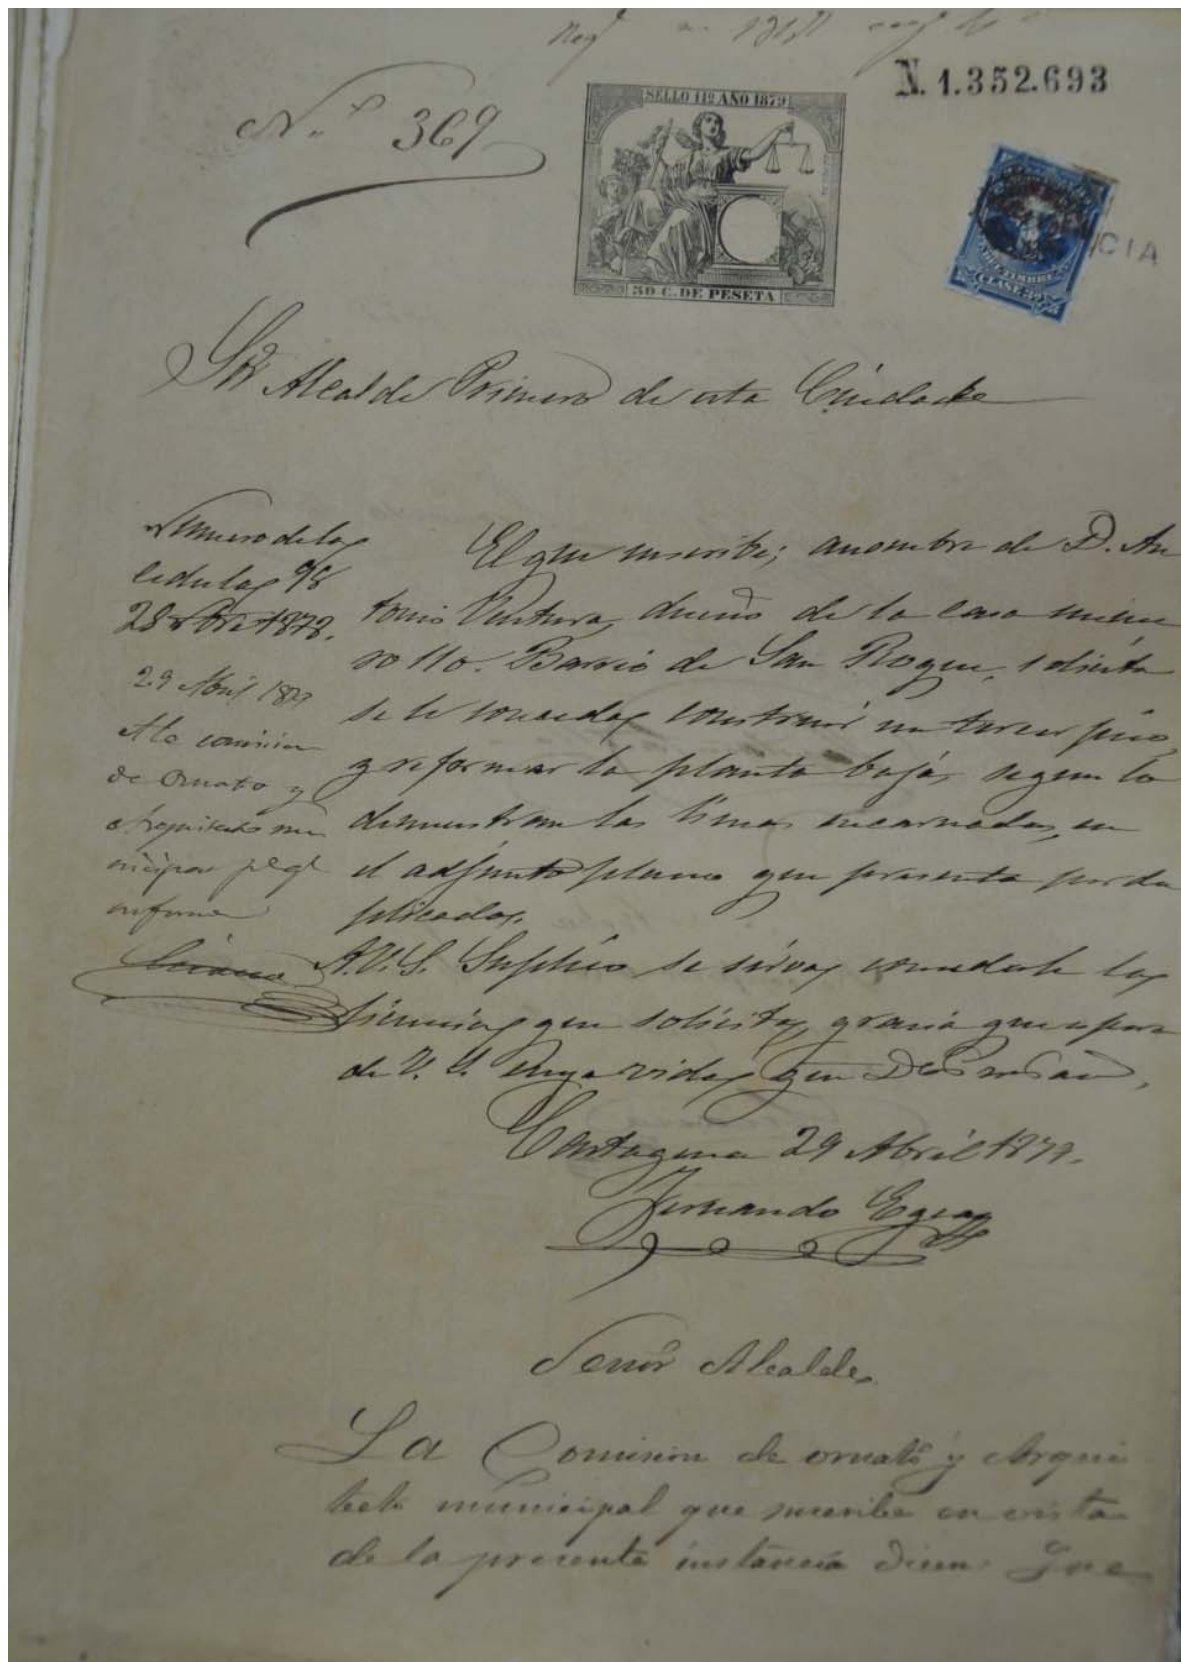 N.º 369
SELLO 11º AÑO 1879
50 C. DE PESETA
N. 1.352.693
TIMBRE
CLASE
CIA
Sor Alcalde Primero de esta Ciudad
Numero de la
cedula 98
28 1878.
29 Abril 1879
A la comision
de Ornato y
Arquitecto mu
nicipal para qe
informe
El que suscribe; a nombre de D. An
tonio Ventura, dueño de la casa nume
ro 110. Barrio de San Roque, solicita
se le conceda construir un tercer piso,
y reformar la planta baja, segun lo
demuestran las lineas encarnadas, en
el adjunto plano que presenta por du
plicado.
A.V.S. Suplico se sirva concederle la
licencia que solicita, gracia que espera
de V. S. cuya vida gue Dios ms as,
Cartagena 29 Abril 1879.
Fernando Egea
Señor Alcalde
La Comision de ornato y Arqui
tecto municipal que suscribe en vista
de la presente instancia dicen: Que